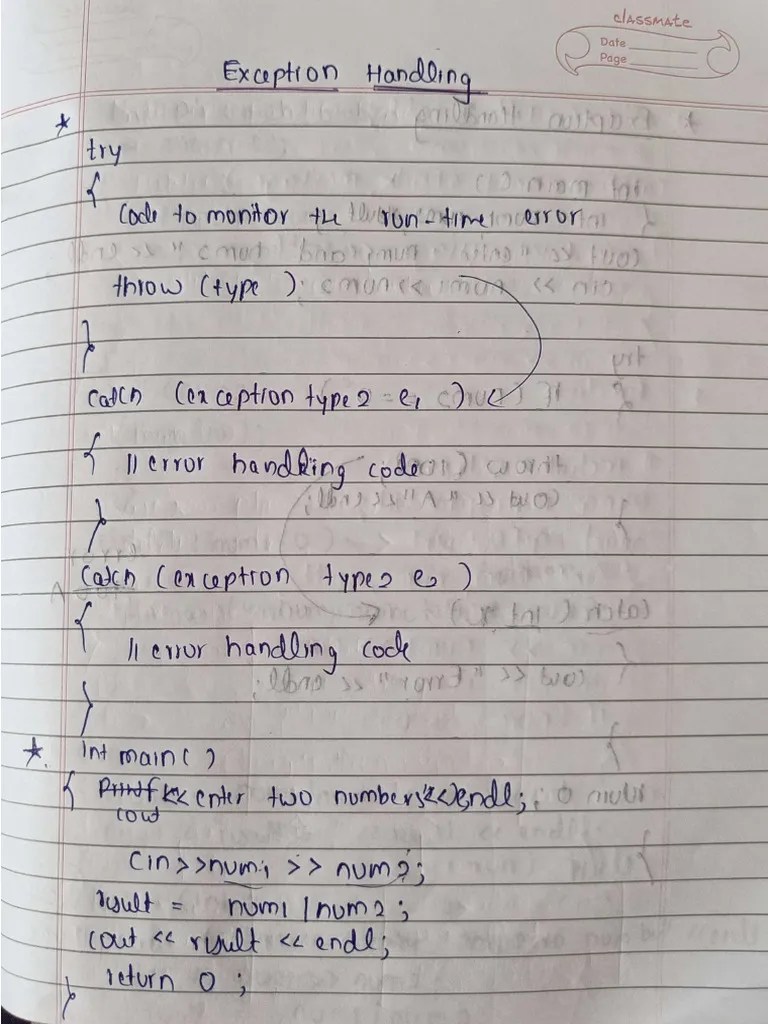 classmate
Date
Page
Exception Handling
* try
{
code to monitor the run-time error
throw (type );
}
catch (exception type2 = e1 )
{
// error handling code
}
catch (exception type2 e2 )
{
// error handling code
}
*. int main( )
{ printf << enter two numbers"<<endl;
cout
cin>>num1 >> num2;
result = num1 / num2 ;
cout << result << endl;
return 0 ;
}